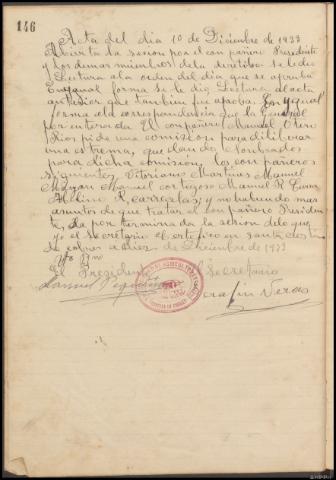 146
Acta del dia 10 de Diciembre de 1933
Abierta la sesion por el compañero Presidente
y los demas miembros de la directiba se le dio
Lectura a la orden del dia que se aprueba
En ygual forma se le dio Lectura al acta
anterior que tambien fue aprobas En ygual
forma a la correspondencia que la General
por enterada El compañero Manuel Otero
Rios pide una comision para dilibirar
una estrema, quedando nombrados
para dicha comision, los compañeros
siguientes Vitoriano Martinas Manuel
Manuel cortegoso Manuel R
Albino R, carregalas y no habiendo mas
asuntos de que tratar el compañero Presiden
te, da por terminada la sesion de lo que
yo el secretario certifico en santa cristi
na de cobres a diez de Diciembre de 1933
Vto Bno
El Presidente El Secretario
Manuel Serafin Veras